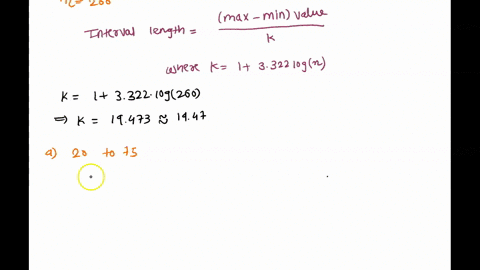 n = 260
Interval length = (max - min) value / K
where K = 1 + 3.322 log(n)
K = 1 + 3.322·log(260)
⇒ K = 19.473 ≈ 19.47
a) 20 to 75